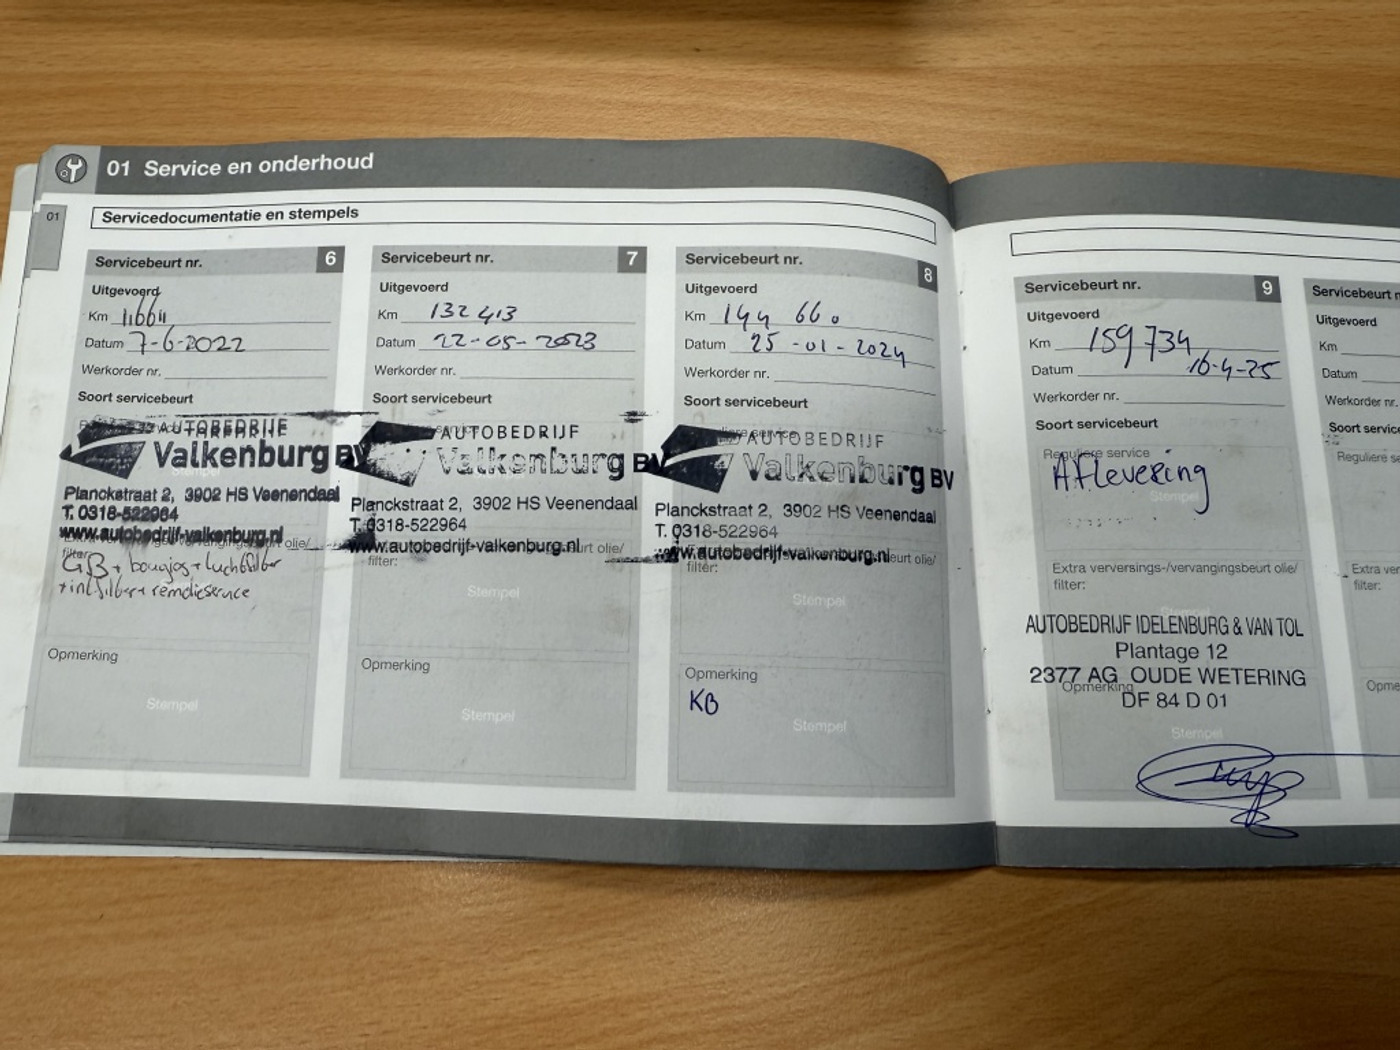 01 Service en onderhoud
01
Servicedocumentatie en stempels
Servicebeurt nr. 6
Uitgevoerd
Km 116611
Datum 7-6-2022
Werkorder nr.
Soort servicebeurt
AUTOBEDRIJF
Valkenburg BV
Planckstraat 2, 3902 HS Veenendaal
T. 0318-522964
www.autobedrijf-valkenburg.nl
olie/
filter:
GB + bougies + luchtfilter
+ int.filter + remolieservice
Opmerking
Stempel
Servicebeurt nr. 7
Uitgevoerd
Km 132 413
Datum 22-05-2023
Werkorder nr.
Soort servicebeurt
AUTOBEDRIJF
Valkenburg BV
Planckstraat 2, 3902 HS Veenendaal
T. 0318-522964
www.autobedrijf-valkenburg.nl
beurt olie/
filter:
Stempel
Opmerking
Stempel
Servicebeurt nr. 8
Uitgevoerd
Km 144 660
Datum 25-01-2024
Werkorder nr.
Soort servicebeurt
AUTOBEDRIJF
Valkenburg BV
Planckstraat 2, 3902 HS Veenendaal
T. 0318-522964
www.autobedrijf-valkenburg.nl
beurt olie/
filter:
Stempel
Opmerking
KB
Stempel
Servicebeurt nr. 9
Uitgevoerd
Km 159 734
Datum 16-4-25
Werkorder nr.
Soort servicebeurt
Reguliere service
Aflevering
Stempel
Extra verversings-/vervangingsbeurt olie/
filter:
Stempel
AUTOBEDRIJF IDELENBURG & VAN TOL
Plantage 12
2377 AG OUDE WETERING
Opmerking
DF 84 D 01
Stempel
Servicebeurt n
Uitgevoerd
Km
Datum
Werkorder nr.
Soort service
Reguliere se
Extra ver
filter:
Opme